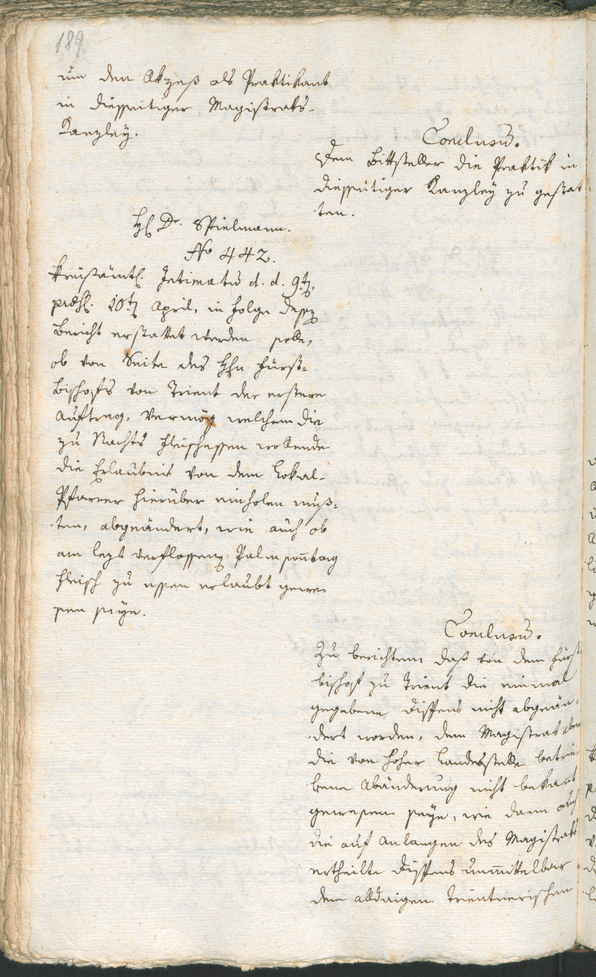 189
um den Akzeß als Praktikant
in diesseitiger Magistrats-
Kanzley.
Conclusum.
Dem Bittsteller die Praktik in
diesseitiger Kanzley zu gestat-
ten.
H. Dr. Spielmann.
No 442.
Kreisämtl. Intimatum d. d. 9t.
praes. 10t. April, in Folge dessen
Bericht erstattet werden solle,
ob von Seite des Hhn Fürst-
Bischofs von Trient der erstere
Auftrag, vermög welchem die
zu Nachts Fleischessen wollende
die Erlaubnis von dem Lokal-
Pfarrer hierüber einholen muß-
ten, abgeändert, wie auch ob
am lezt verflossenen Palmsonntag
Fleisch zu essen erlaubt gewe-
sen seye.
Conclusum.
Zu berichten daß von dem Fürst-
bischof zu Trient die einmal
gegebene Dispens nicht abgeän-
dert worden, dem Magistrat aber
die von hoher Landesstelle betrie-
bene Abänderung nicht bekannt
gewesen seye, wie dann auch
die auf Anlangen des Magistrats
ertheilte Dispens unmittelbar
dem alldaigen Trientnerischen